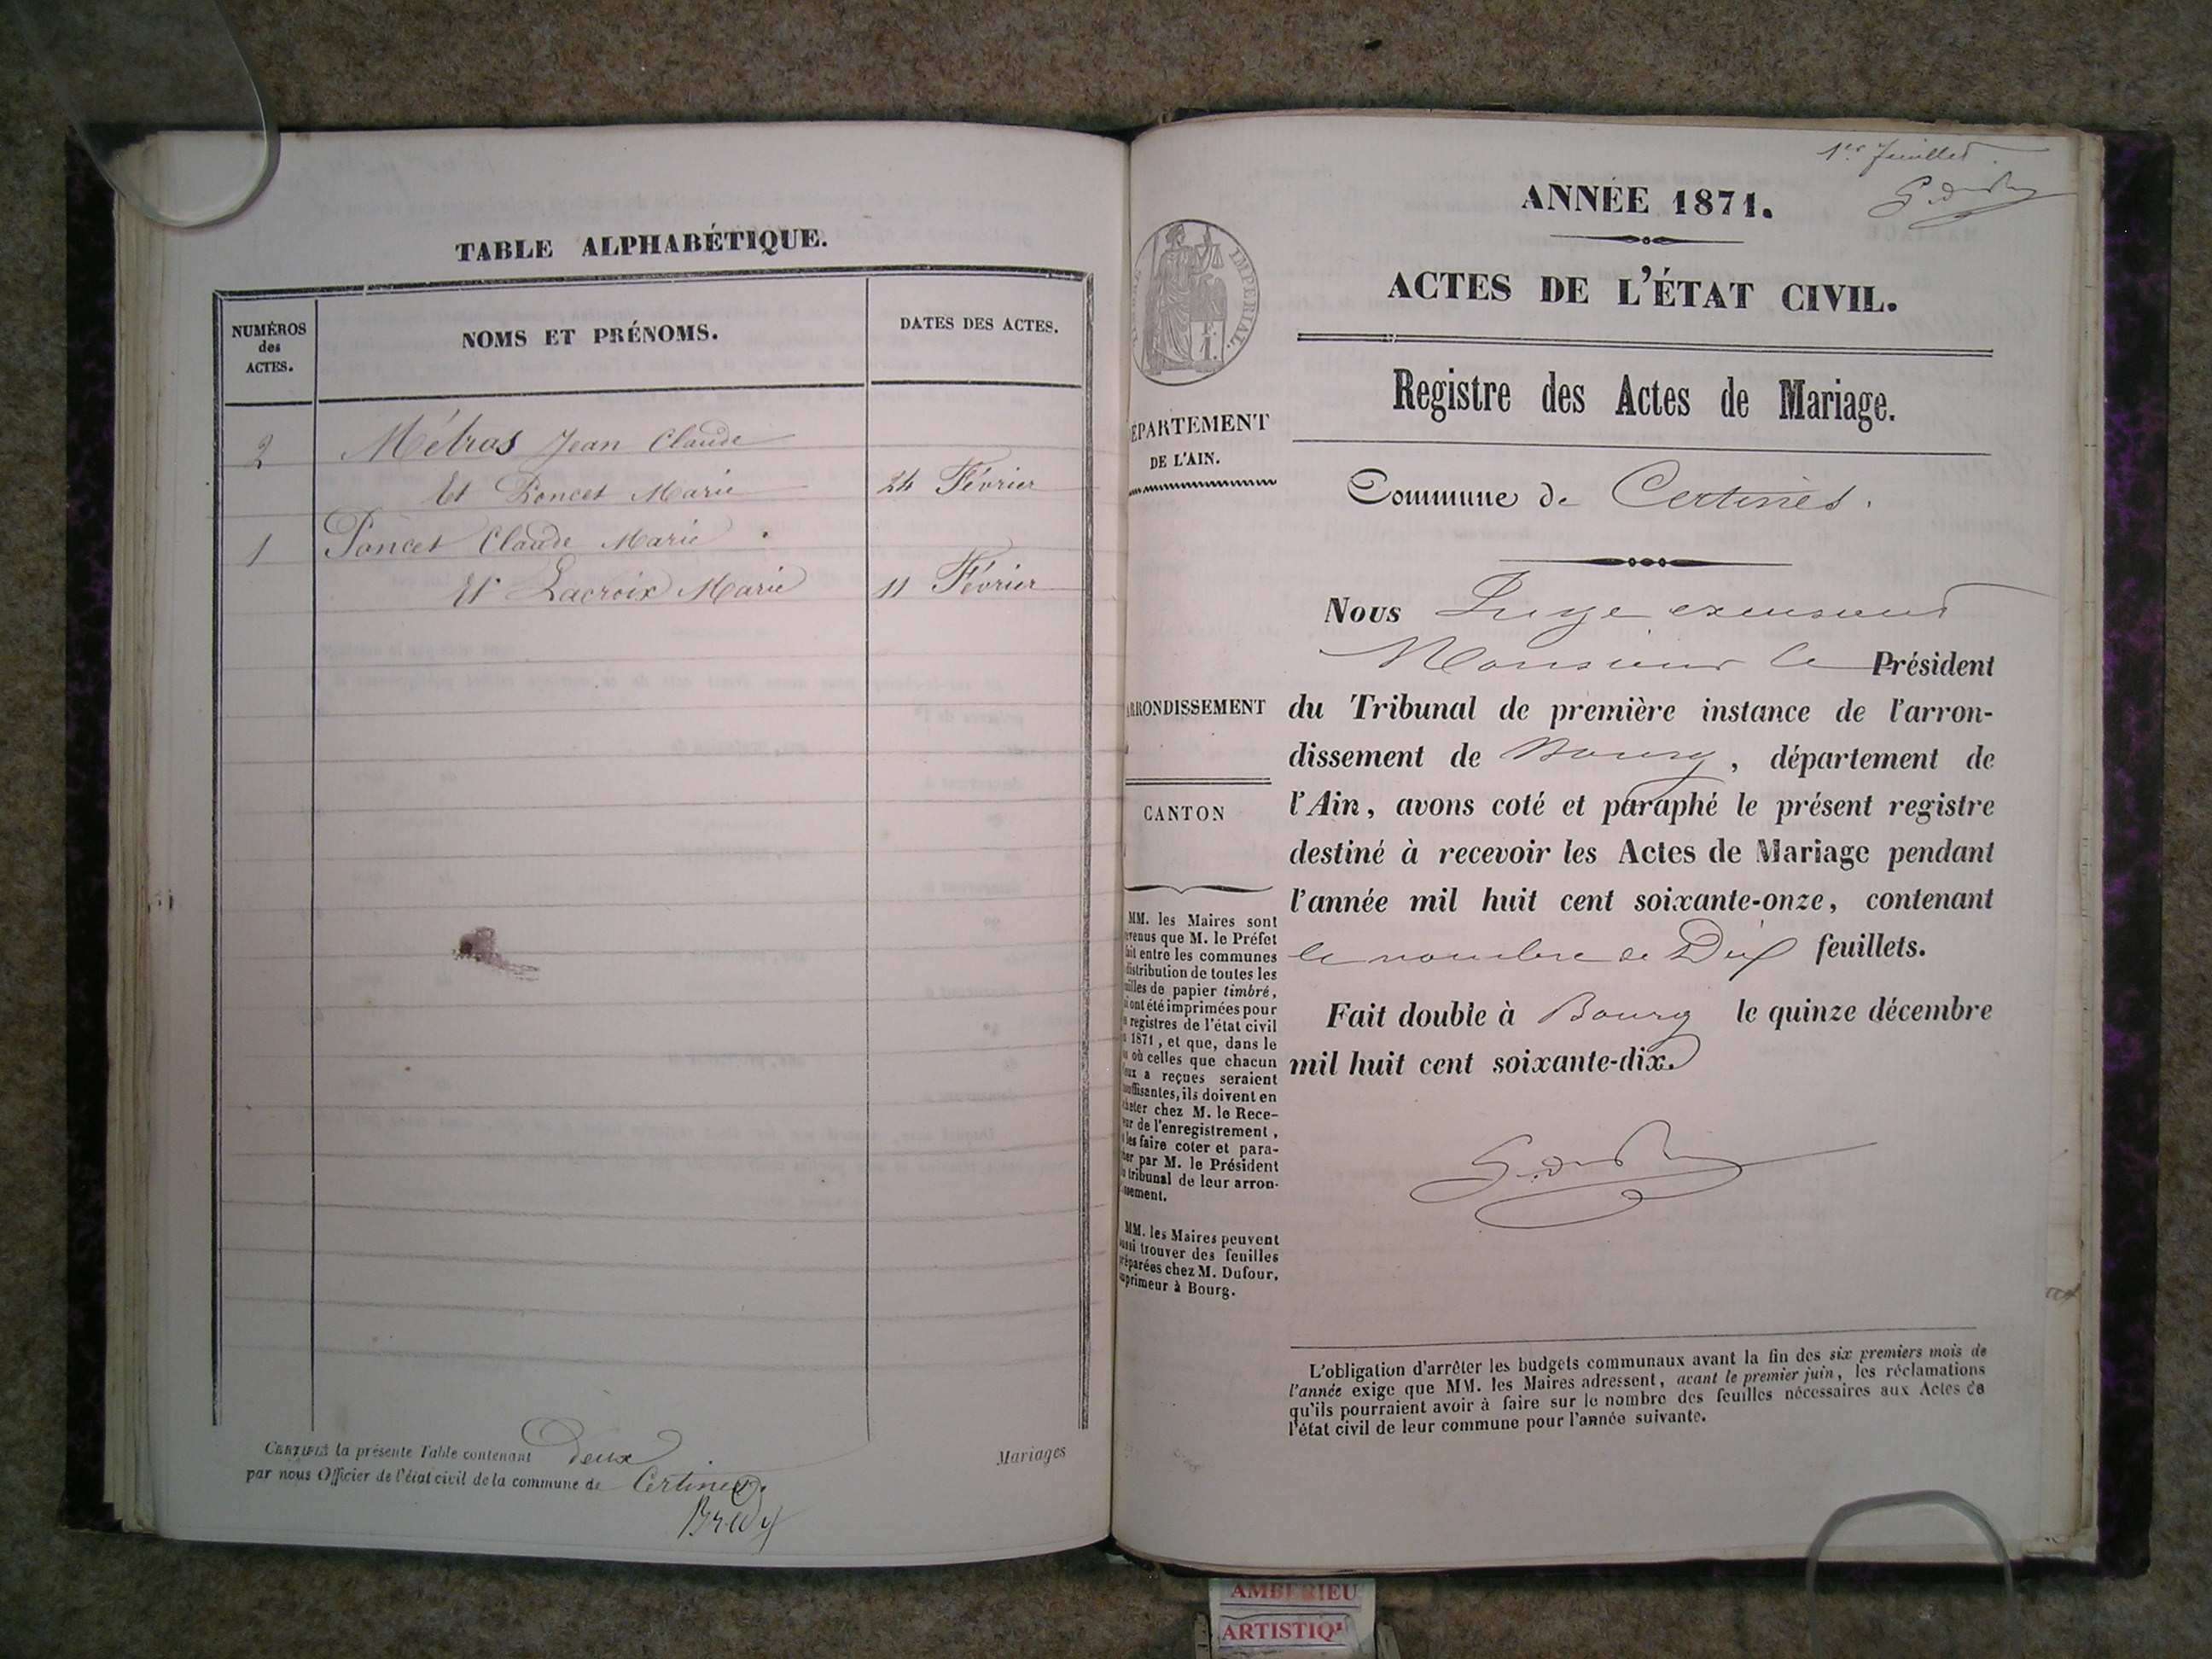 TABLE ALPHABÉTIQUE.
NUMÉROS
des
ACTES.
NOMS ET PRÉNOMS.
DATES DES ACTES.
2 Métras Jean Claude
Et Poncet Marie 24 Février
1 Poncet Claude Marie
Et Lacroix Marie 11 Février
CERTIFIÉ la présente Table contenant deux Mariages
par nous Officier de l'état civil de la commune de Certines.
1er feuillet
ANNÉE 1871.
ACTES DE L'ÉTAT CIVIL.
IMPÉRIAL.
Registre des Actes de Mariage.
ÉPARTEMENT
DE L'AIN.
Commune de Certines.
Nous Juge
Monsieur le Président
RRONDISSEMENT
du Tribunal de première instance de l'arron-
dissement de Bourg, département de
l'Ain, avons coté et paraphé le présent registre
destiné à recevoir les Actes de Mariage pendant
l'année mil huit cent soixante-onze, contenant
le nombre de Dix feuillets.
Fait double à Bourg le quinze décembre
mil huit cent soixante-dix.
CANTON
MM. les Maires sont
evenus que M. le Préfet
ait entre les communes
distribution de toutes les
uilles de papier timbré,
i ont été imprimées pour
s registres de l'état civil
1871, et que, dans le
s où celles que chacun
eux a reçues seraient
suffisantes, ils doivent en
cheter chez M. le Rece-
eur de l'enregistrement,
les faire coter et para-
her par M. le Président
u tribunal de leur arron-
ssement.
MM. les Maires peuvent
ussi trouver des feuilles
réparées chez M. Dufour,
mprimeur à Bourg.
L'obligation d'arrêter les budgets communaux avant la fin des six premiers mois de
l'année exige que MM. les Maires adressent, avant le premier juin, les réclamations
qu'ils pourraient avoir à faire sur le nombre des feuilles nécessaires aux Actes de
l'état civil de leur commune pour l'année suivante.
AMBERIEU
ARTISTIQ